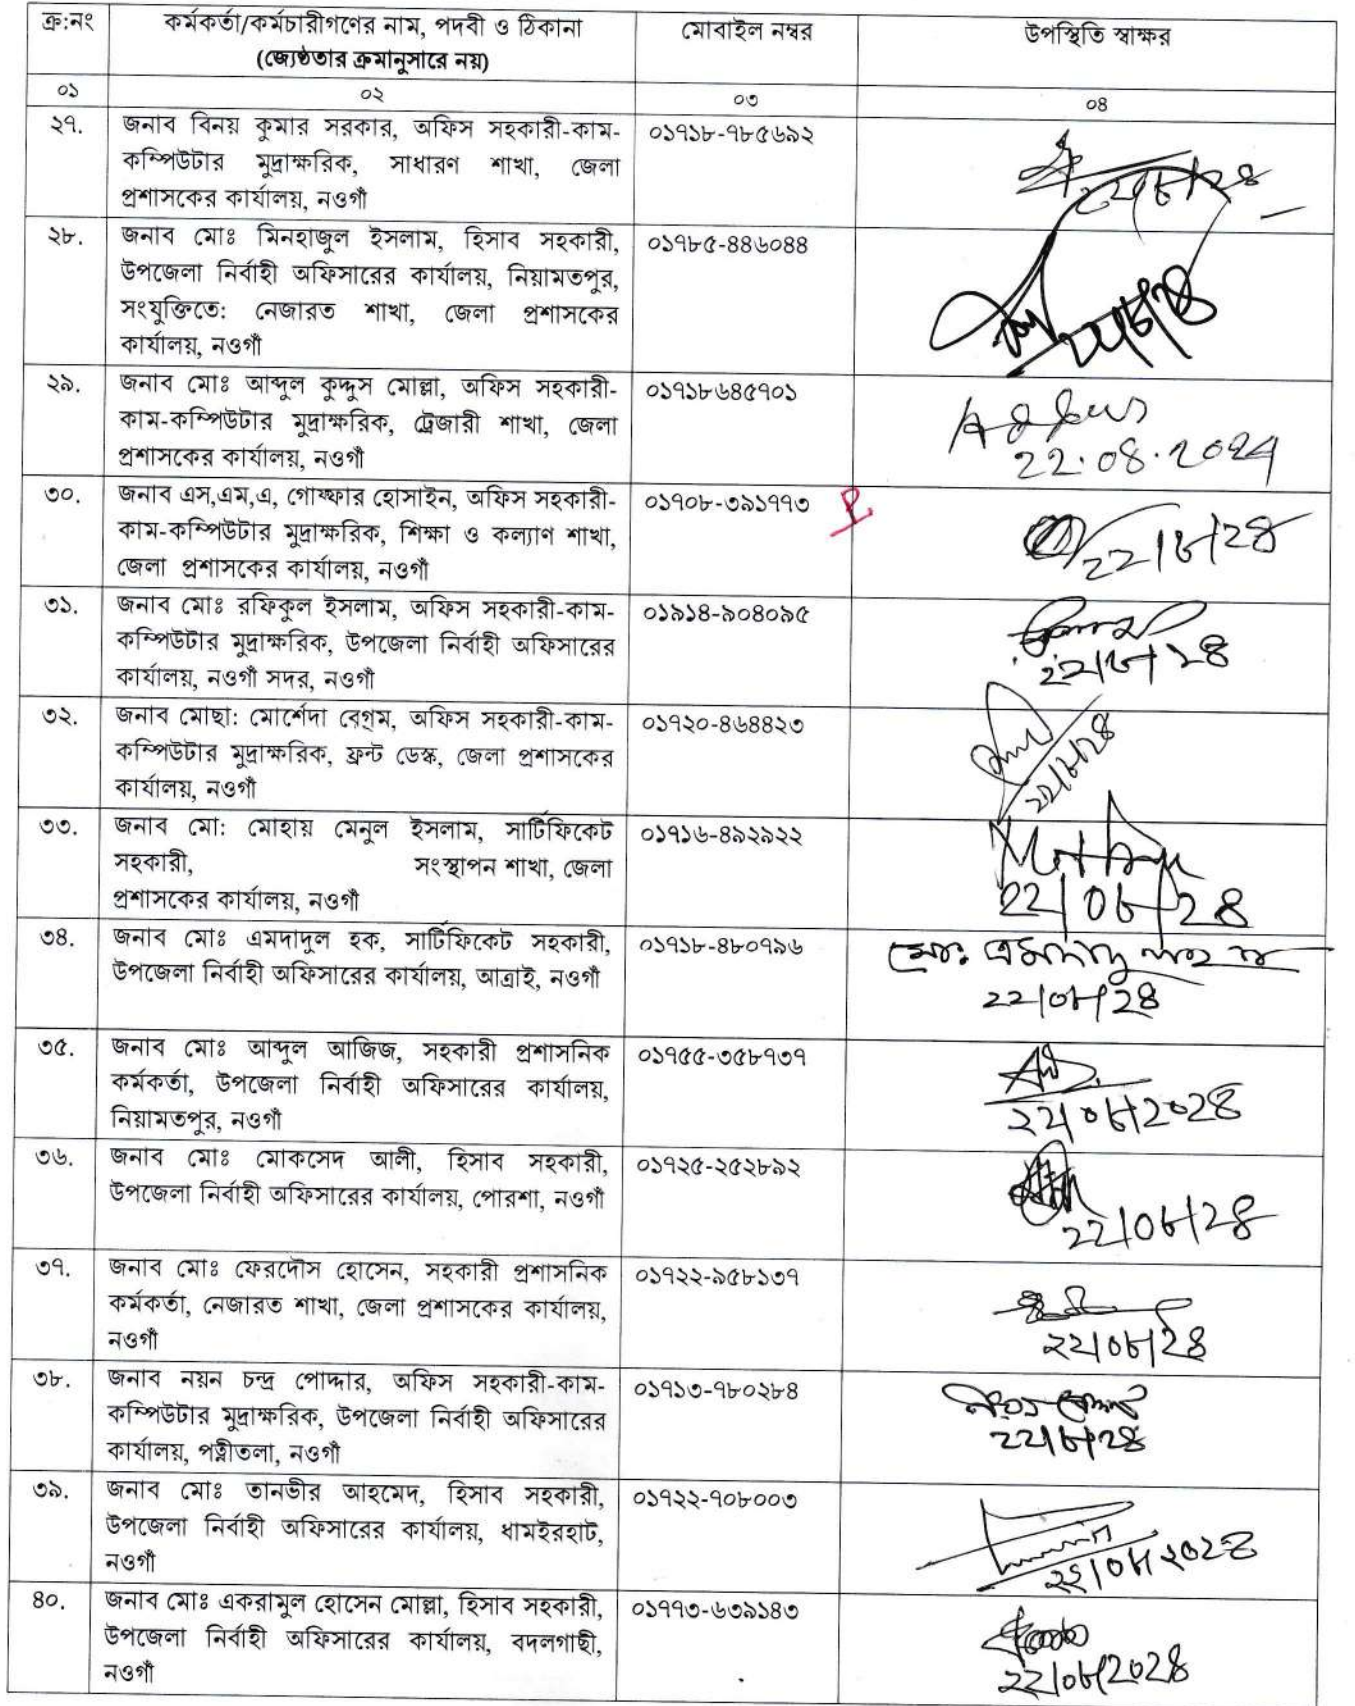 ক্র:নং
কর্মকর্তা/কর্মচারীগণের নাম, পদবী ও ঠিকানা
(জ্যেষ্ঠতার ক্রমানুসারে নয়)
মোবাইল নম্বর
উপস্থিতি স্বাক্ষর
০১
০২
০৩
০৪
২৭.
জনাব বিনয় কুমার সরকার, অফিস সহকারী-কাম-
কম্পিউটার মুদ্রাক্ষরিক, সাধারণ শাখা, জেলা
প্রশাসকের কার্যালয়, নওগাঁ
০১৭১৮-৭৮৫৬৯২
২২/৮/২৪
২৮.
জনাব মোঃ মিনহাজুল ইসলাম, হিসাব সহকারী,
উপজেলা নির্বাহী অফিসারের কার্যালয়, নিয়ামতপুর,
সংযুক্তিতে: নেজারত শাখা, জেলা প্রশাসকের
কার্যালয়, নওগাঁ
০১৭৮৫-৪৪৬০৪৪
২২/৮/২৪
২৯.
জনাব মোঃ আব্দুল কুদ্দুস মোল্লা, অফিস সহকারী-
কাম-কম্পিউটার মুদ্রাক্ষরিক, ট্রেজারী শাখা, জেলা
প্রশাসকের কার্যালয়, নওগাঁ
০১৭১৮৬৪৫৭০১
22.08.2024
৩০.
জনাব এস,এম,এ, গোফ্ফার হোসাইন, অফিস সহকারী-
কাম-কম্পিউটার মুদ্রাক্ষরিক, শিক্ষা ও কল্যাণ শাখা,
জেলা প্রশাসকের কার্যালয়, নওগাঁ
০১৭০৮-৩৯১৭৭৩
২২/৮/২৪
৩১.
জনাব মোঃ রফিকুল ইসলাম, অফিস সহকারী-কাম-
কম্পিউটার মুদ্রাক্ষরিক, উপজেলা নির্বাহী অফিসারের
কার্যালয়, নওগাঁ সদর, নওগাঁ
০১৯১৪-৯০৪০৯৫
২২/৮/২৪
৩২.
জনাব মোছা: মোর্শেদা বেগম, অফিস সহকারী-কাম-
কম্পিউটার মুদ্রাক্ষরিক, ফ্রন্ট ডেস্ক, জেলা প্রশাসকের
কার্যালয়, নওগাঁ
০১৭২০-৪৬৪৪২৩
২২/৮/২৪
৩৩.
জনাব মো: মোহায় মেনুল ইসলাম, সার্টিফিকেট
সহকারী, সংস্থাপন শাখা, জেলা
প্রশাসকের কার্যালয়, নওগাঁ
০১৭১৬-৪৯২৯২২
২২/০৮/২৪
৩৪.
জনাব মোঃ এমদাদুল হক, সার্টিফিকেট সহকারী,
উপজেলা নির্বাহী অফিসারের কার্যালয়, আত্রাই, নওগাঁ
০১৭১৮-৪৮০৭৯৬
মোঃ এমদাদুল হক
২২/০৮/২৪
৩৫.
জনাব মোঃ আব্দুল আজিজ, সহকারী প্রশাসনিক
কর্মকর্তা, উপজেলা নির্বাহী অফিসারের কার্যালয়,
নিয়ামতপুর, নওগাঁ
০১৭৫৫-৩৫৮৭৩৭
২২/০৮/২০২৪
৩৬.
জনাব মোঃ মোকসেদ আলী, হিসাব সহকারী,
উপজেলা নির্বাহী অফিসারের কার্যালয়, পোরশা, নওগাঁ
০১৭২৫-২৫২৮৯২
২২/০৮/২৪
৩৭.
জনাব মোঃ ফেরদৌস হোসেন, সহকারী প্রশাসনিক
কর্মকর্তা, নেজারত শাখা, জেলা প্রশাসকের কার্যালয়,
নওগাঁ
০১৭২২-৯৫৮১৩৭
২২/০৮/২৪
৩৮.
জনাব নয়ন চন্দ্র পোদ্দার, অফিস সহকারী-কাম-
কম্পিউটার মুদ্রাক্ষরিক, উপজেলা নির্বাহী অফিসারের
কার্যালয়, পত্নীতলা, নওগাঁ
০১৭১৩-৭৮০২৮৪
২২/৮/২৪
৩৯.
জনাব মোঃ তানভীর আহমেদ, হিসাব সহকারী,
উপজেলা নির্বাহী অফিসারের কার্যালয়, ধামইরহাট,
নওগাঁ
০১৭২২-৭০৮০০৩
২২/০৮/২০২৪
৪০.
জনাব মোঃ একরামুল হোসেন মোল্লা, হিসাব সহকারী,
উপজেলা নির্বাহী অফিসারের কার্যালয়, বদলগাছী,
নওগাঁ
০১৭৭৩-৬৩৯১৪৩
২২/০৮/২০২৪